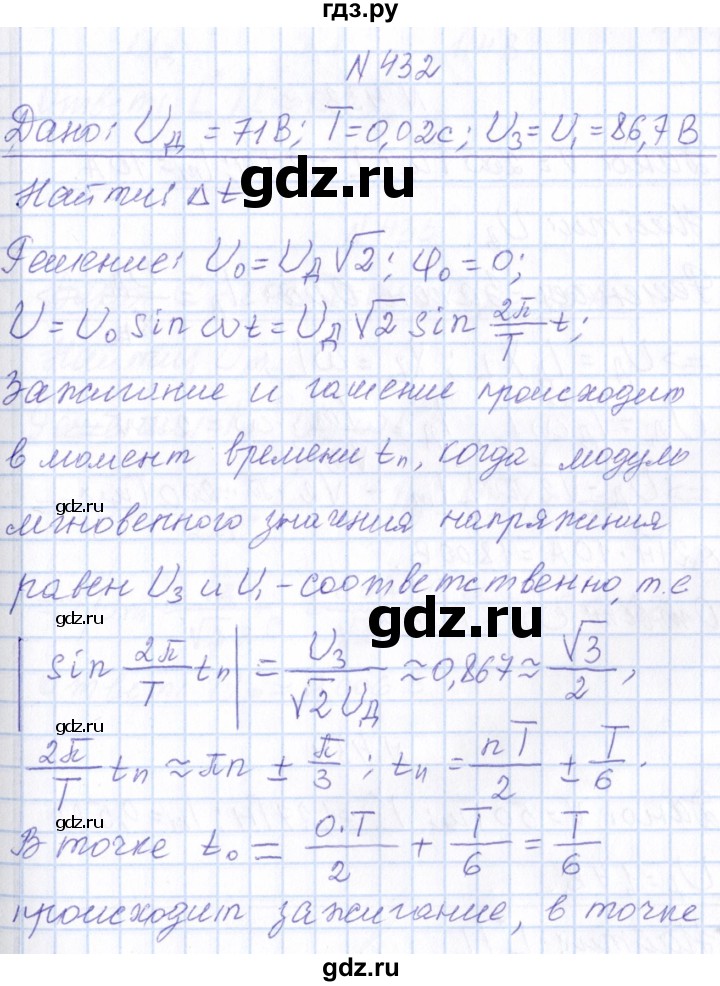 гдз.ру
N 432
Дано: U_Д = 71В; T=0,02с; U₃=U₁=86,7 В
Найти: Δt
gdz.ru
Решение: U₀=U_Д√2; φ₀=0;
U=U₀ sin ωt=U_Д√2 sin 2π/T t;
Зажигание и гашение происходит
в момент времени tₙ, когда модуль
gdz.ru
gdz.ru
мгновенного значения напряжения
равен U₃ и U₁ - соответственно, т.е
gdz.ru
gdz.ru
|sin 2π/T tₙ| = U₃/√2U_Д ≈0,867≈ √3/2,
2π/T tₙ ≈ πn ± π/3; tₙ = nT/2 ± T/6.
gdz.ru
gdz.ru
В точке t₀ = 0·T/2 + T/6 = T/6
происходит зажигание, в точке
gdz.ru